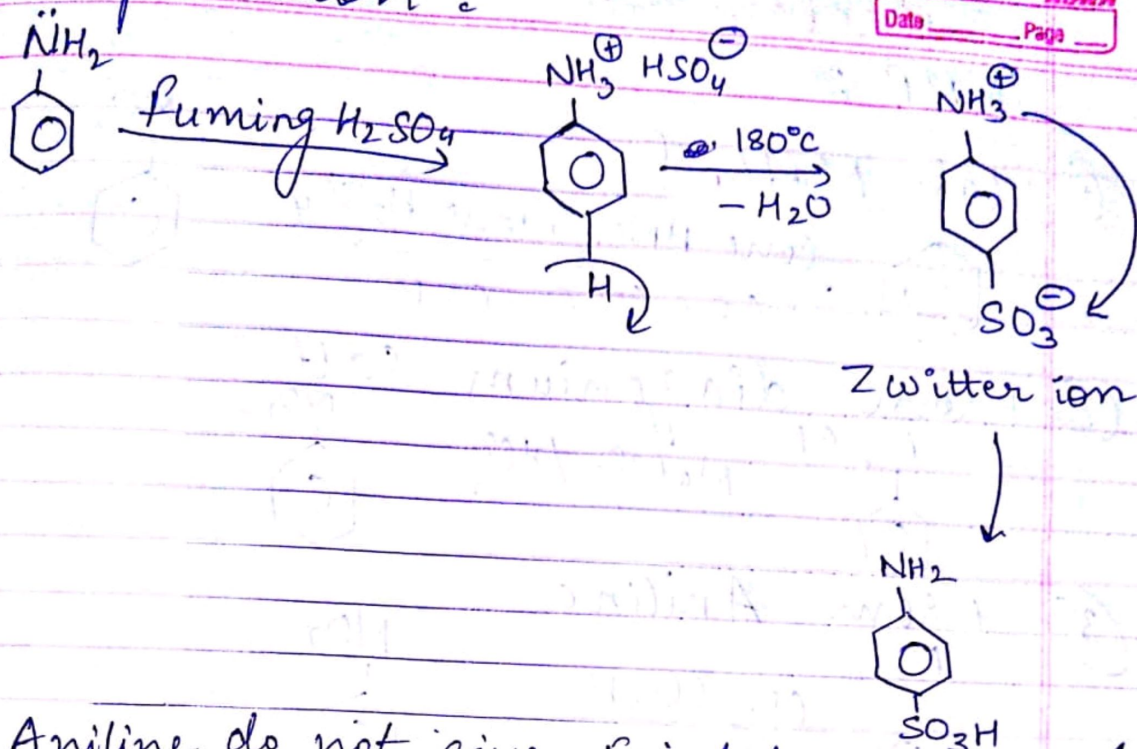 Date Page
N̈H₂
fuming H₂SO₄
NH₃⊕ HSO₄⊖
H
180°C
– H₂O
NH₃⊕
SO₃⊖
Zwitter ion
NH₂
SO₃H
Aniline do not